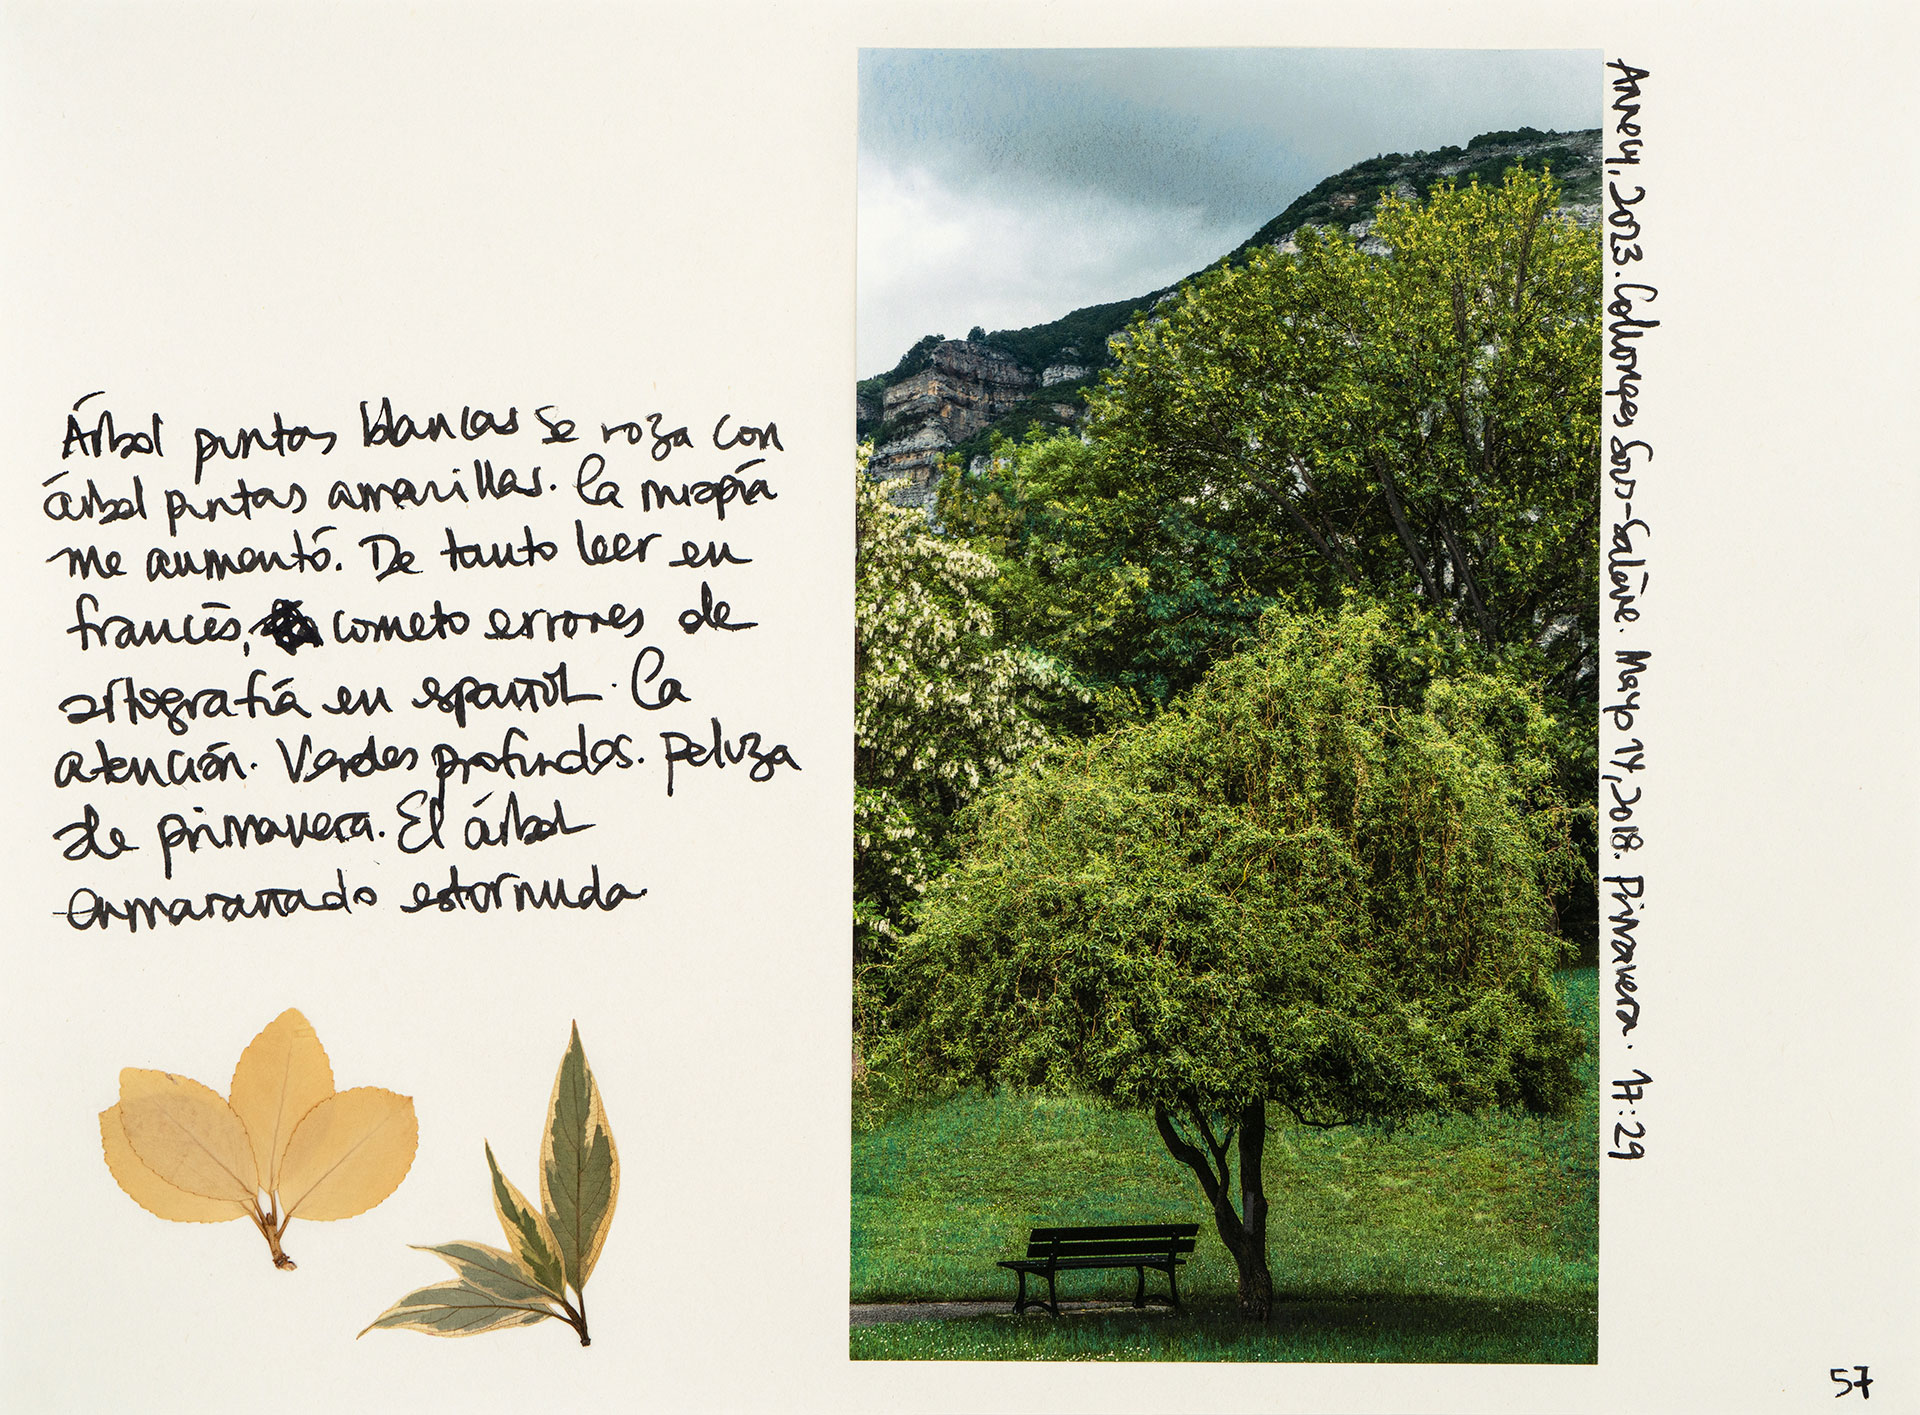 Árbol puntas blancas se roza con
árbol puntas amarillas. La miopía
me aumentó. De tanto leer en
francés, cometo errores de
ortografía en español. La
atención. Verdes profundos. Peluza
de primavera. El árbol
enmarañado estornuda.
Annecy, 2023. Collonges Sous-Salève. Mayo 14, 2018. Primavera. 17:29
57